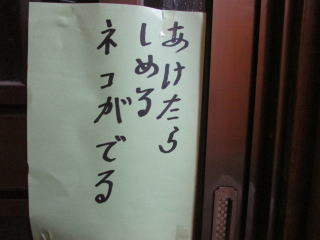 あけたら
しめる
ネコがでる